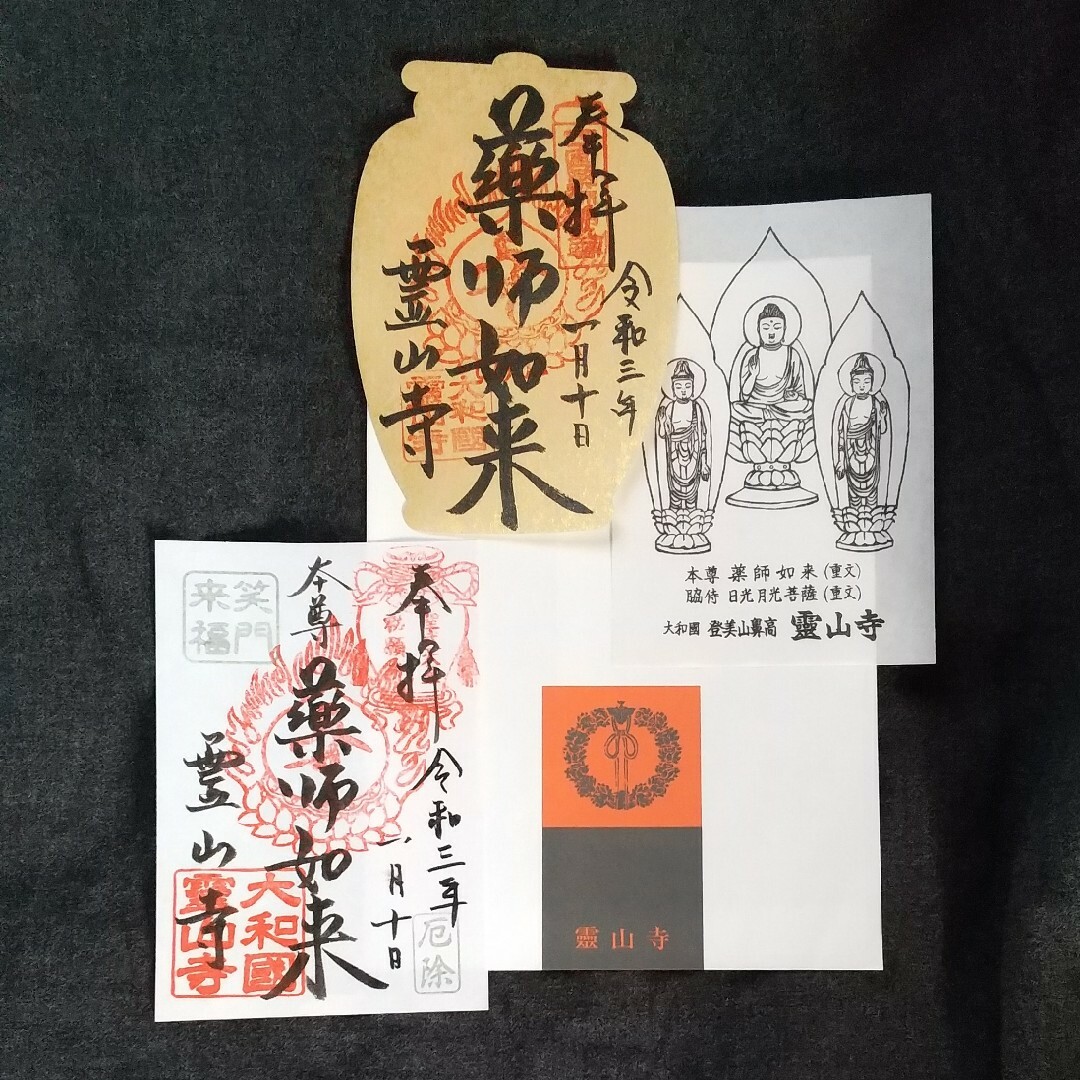 奉拜
令和三年
一月十日
藥師如来
霊山寺
大和國
靈山寺
本尊 薬師如来(重文)
脇侍 日光月光菩薩(重文)
大和國 登美山鼻高 靈山寺
奉拜
令和三年
一月十日
本尊
藥師如来
霊山寺
笑門
来福
大和國
靈山寺
厄除
靈山寺